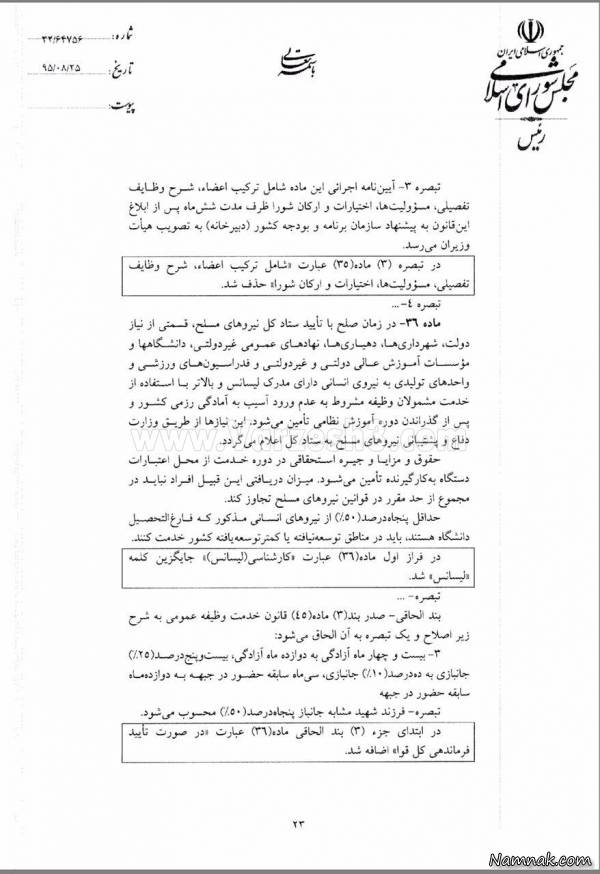 جمهوری اسلامی ایران
مجلس شورای اسلامی
رئیس
باسمه تعالی
شماره: ۳۲/۶۴۷۵۶
تاریخ: ۹۵/۰۸/۲۵
پیوست:
تبصره ۳- آیین‌نامه اجرائی این ماده شامل ترکیب اعضاء، شرح وظایف
تفصیلی، مسؤولیت‌ها، اختیارات و ارکان شورا ظرف مدت شش‌ماه پس از ابلاغ
این‌قانون به پیشنهاد سازمان برنامه و بودجه کشور (دبیرخانه) به تصویب هیأت
وزیران می‌رسد.
در تبصره (۳) ماده(۳۵) عبارت «شامل ترکیب اعضاء، شرح وظایف
تفصیلی، مسؤولیت‌ها، اختیارات و ارکان شورا» حذف شد.
تبصره ٤-...
ماده ۳۶- در زمان صلح با تأیید ستاد کل نیروهای مسلح، قسمتی از نیاز
دولت، شهرداری‌ها، دهیاری‌ها، نهادهای عمومی غیردولتی، دانشگاهها و
مؤسسات آموزش عالی دولتی و غیردولتی و فدراسیون‌های ورزشی و
واحدهای تولیدی به نیروی انسانی دارای مدرک لیسانس و بالاتر با استفاده از
خدمت مشمولان وظیفه مشروط به عدم ورود آسیب به آمادگی رزمی کشور و
پس از گذراندن دوره آموزش نظامی تأمین می‌شود. این نیازها از طریق وزارت
دفاع و پشتیبانی نیروهای مسلح به ستاد کل اعلام می‌گردد.
حقوق و مزایا و جیره استحقاقی در دوره خدمت از محل اعتبارات
دستگاه به‌کارگیرنده تأمین می‌شود. میزان دریافتی این قبیل افراد نباید در
مجموع از حد مقرر در قوانین نیروهای مسلح تجاوز کند.
حداقل پنجاه‌درصد(۵۰٪) از نیروهای انسانی مذکور که فارغ‌التحصیل
دانشگاه هستند، باید در مناطق توسعه‌نیافته یا کمتر‌توسعه‌یافته کشور خدمت کنند.
در فراز اول ماده(۳۶) عبارت «کارشناسی(لیسانس)» جایگزین کلمه
«لیسانس» شد.
تبصره- ...
بند الحاقی- صدر بند(۳) ماده(٤٥) قانون خدمت وظیفه عمومی به شرح
زیر اصلاح و یک تبصره به آن الحاق می‌شود:
۳- بیست و چهار ماه آزادگی به دوازده ماه آزادگی، بیست‌وپنج‌درصد(۲۵٪)
جانبازی به ده‌درصد(۱۰٪) جانبازی، سی‌ماه سابقه حضور در جبهه به دوازده‌ماه
سابقه حضور در جبهه
تبصره- فرزند شهید مشابه جانباز پنجاه‌درصد(۵۰٪) محسوب می‌شود.
در ابتدای جزء (۳) بند الحاقی ماده(۳۶) عبارت «در صورت تأیید
فرماندهی کل قوا» اضافه شد.
۲۳
Namnak.com